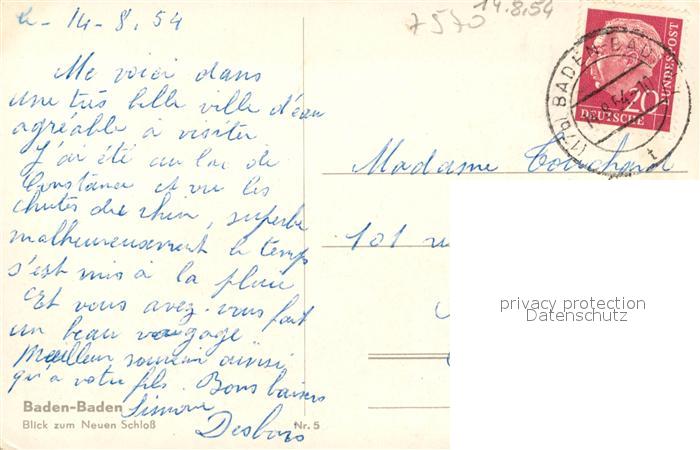 14-8.54
7570
14.8.54
Me voici dans
une très belle ville d'eau
agréable à visiter
J'ai été au lac de
Constance et vu les
chutes du rhin, superbe
malheureusement le temps
s'est mis à la pluie
Et vous avez-vous fait
un beau voyage
Meilleur souvenir ainsi
qu'à votre fils. Bons baisers
Simone
Baden-Baden
Blick zum Neuen Schloß
Nr. 5
Madame
101
20
DEUTSCHE
BUNDESPOST
(17b) BADEN-BAD
privacy protection
Datenschutz